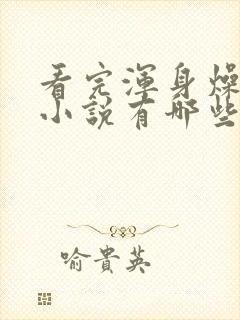 看完渾身燥
小說有哪些
喻貴英